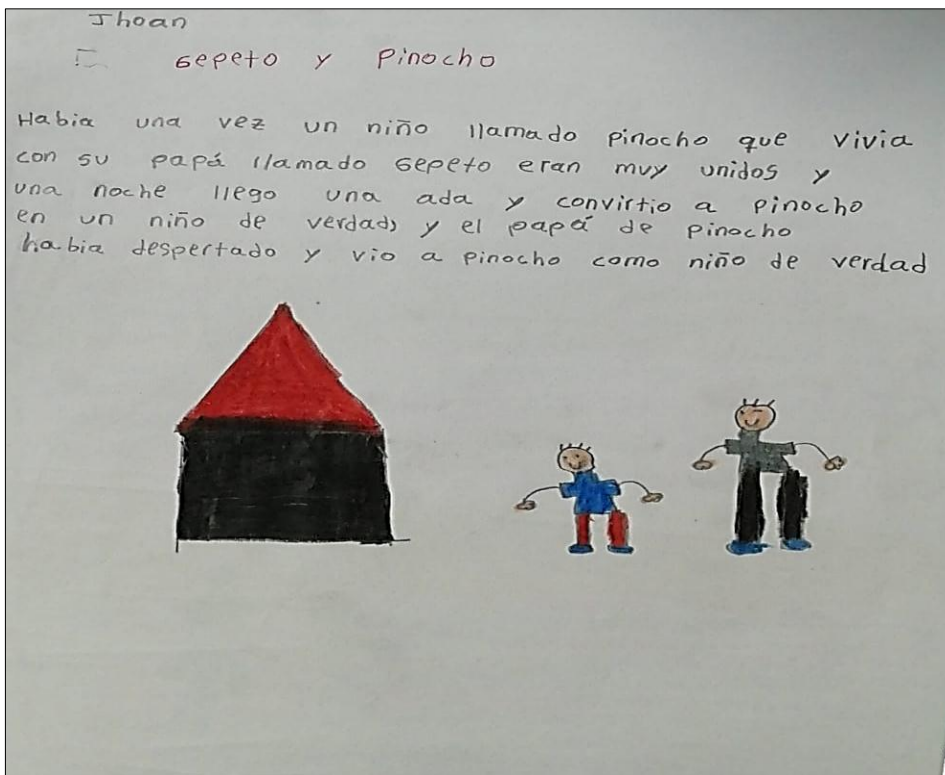 Jhoan
Gepeto y Pinocho
Habia una vez un niño llamado pinocho que vivia
con su papá llamado Gepeto eran muy unidos y
una noche llego una ada y convirtio a pinocho
en un niño de verdad, y el papá de pinocho
habia despertado y vio a pinocho como niño de verdad